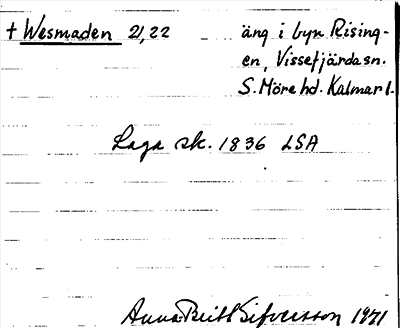 + Wesmaden 21,22 äng i byn Rising-
en, Vissefjärda sn.
S. Möre hd. Kalmar l.
Laga sk. 1836 LSA
Anna-Britt Sifversson 1971